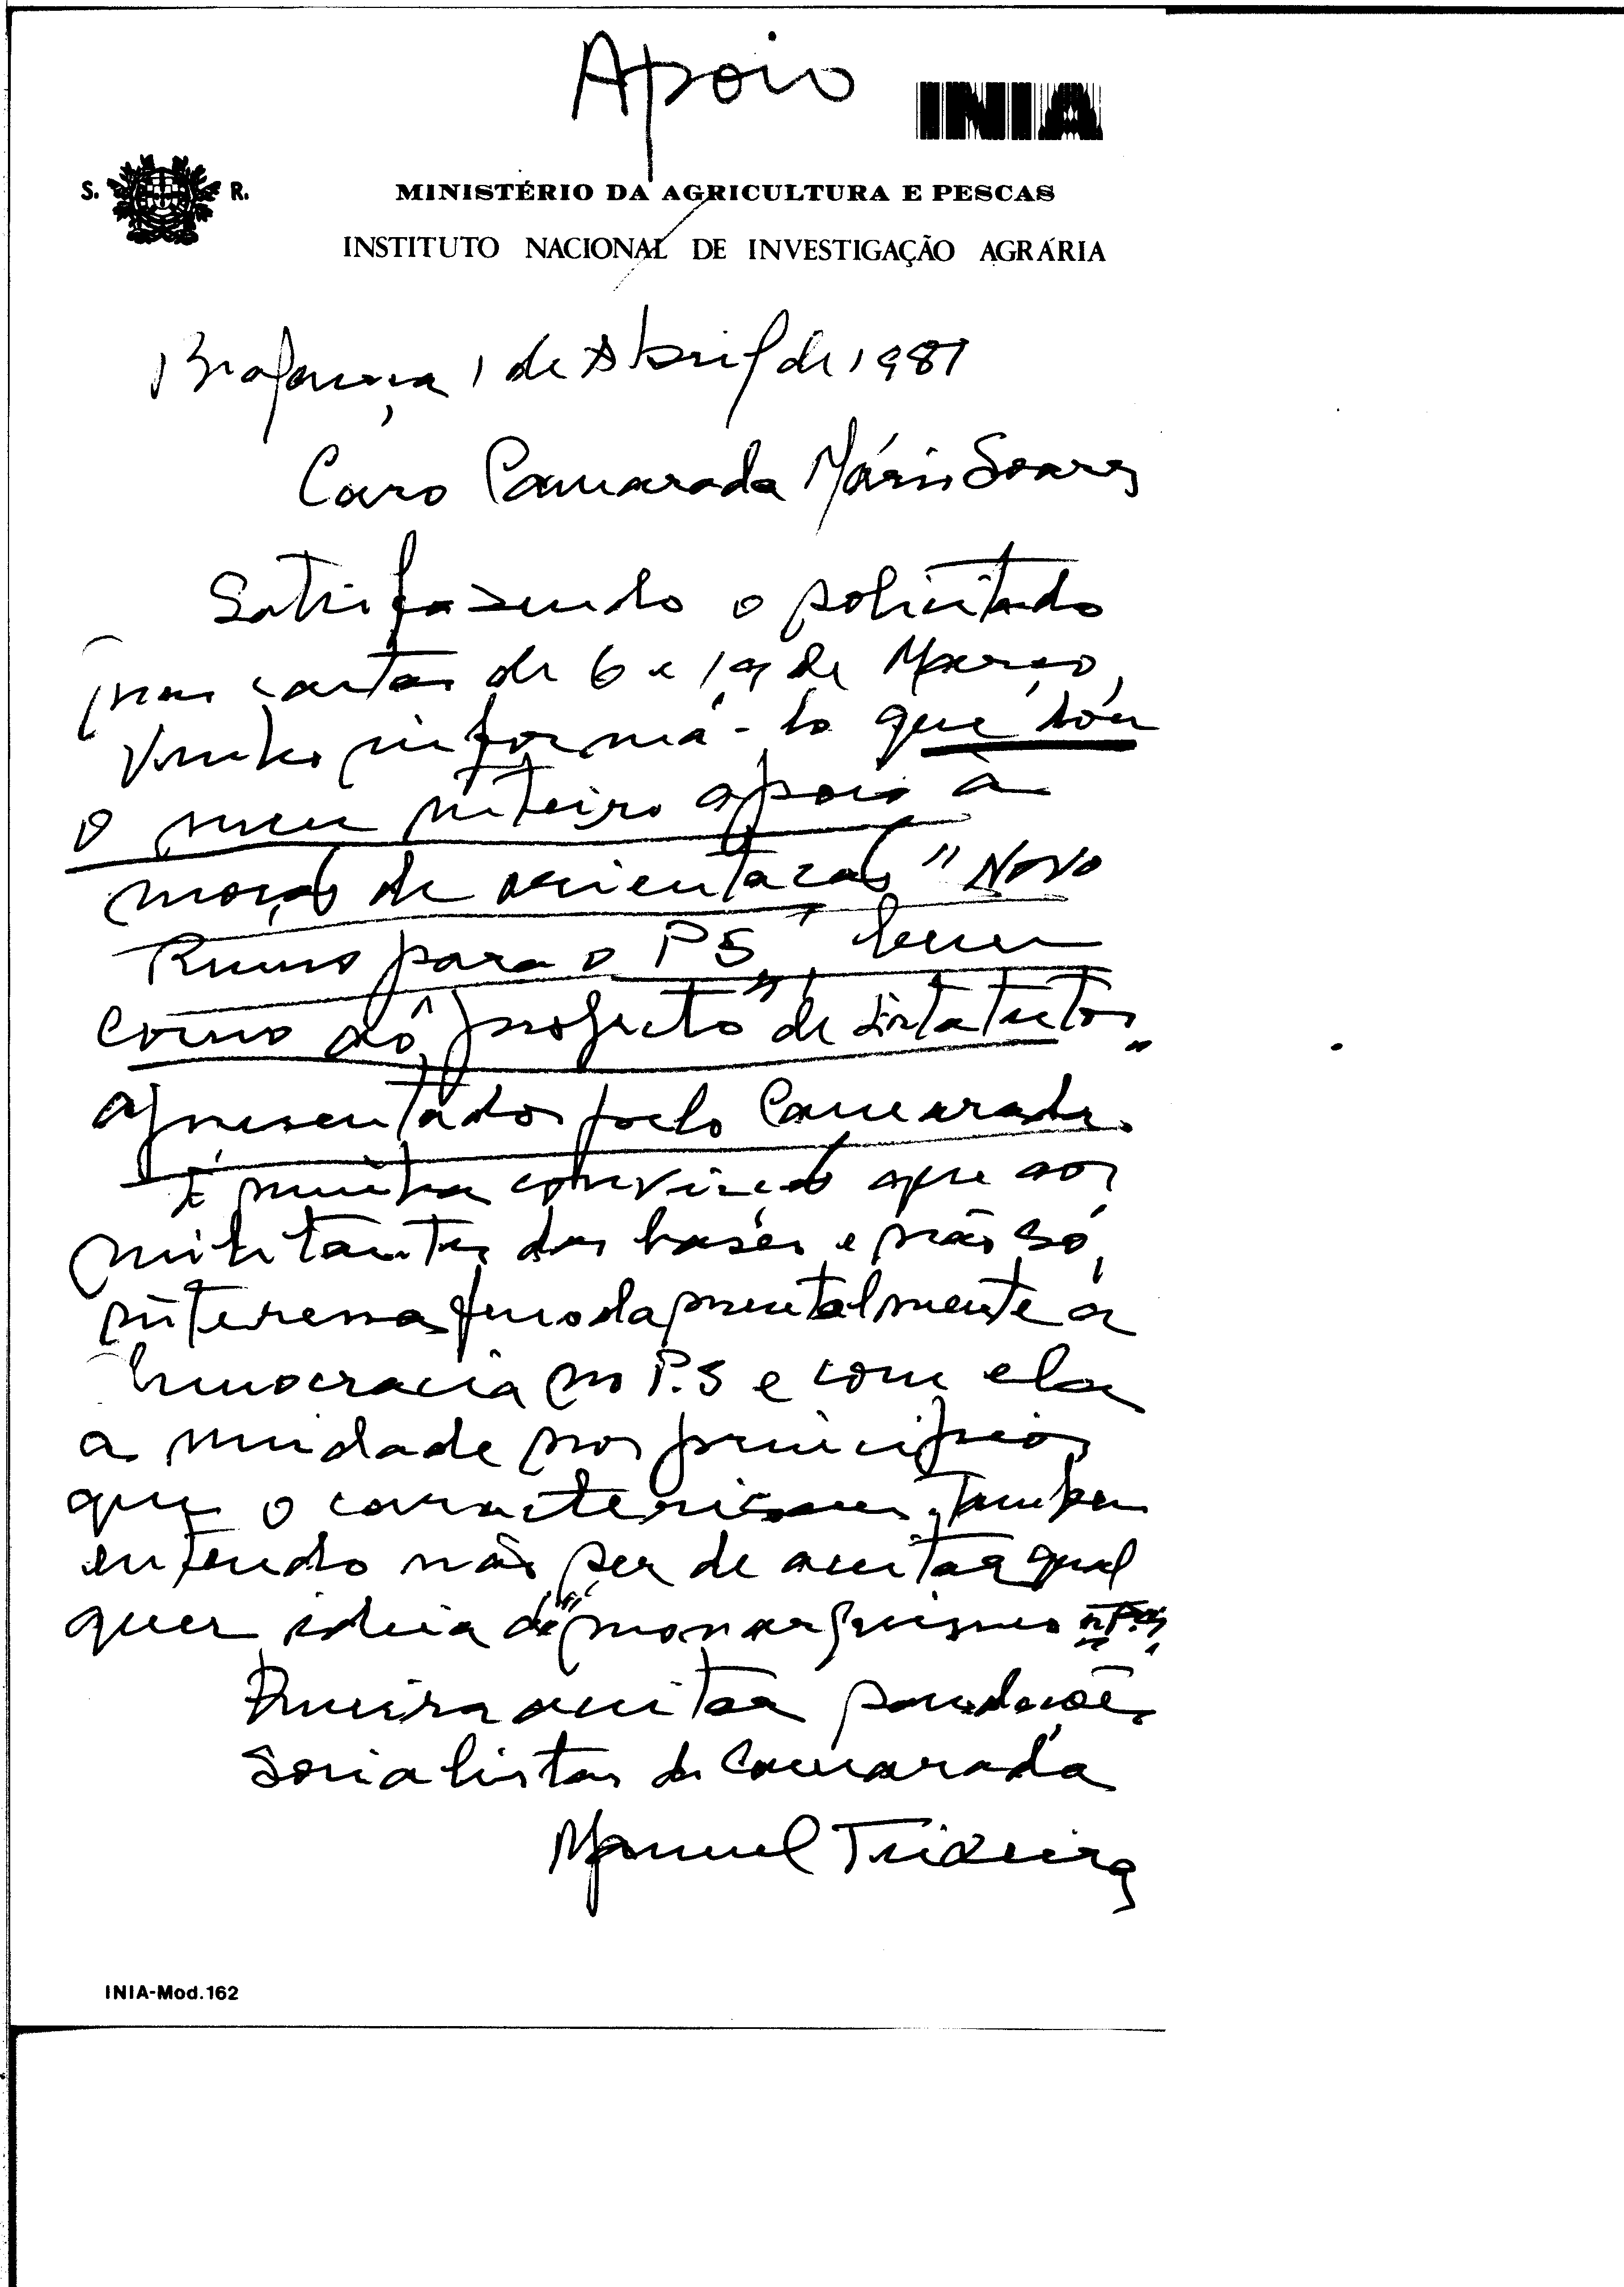 Apoio
INIA
S. R.
MINISTÉRIO DA AGRICULTURA E PESCAS
INSTITUTO NACIONAL DE INVESTIGAÇÃO AGRÁRIA
Bragança 1 de Abril de 1981
Caro Camarada Mário Soares
Satisfazendo o solicitado
nas cartas de 6 e 19 de Março,
venho informá-lo que dou
o meu inteiro apoio à
moção de orientação "Novo
Rumo para o PS" bem
como aô "projecto" de Estatutos"
apresentados pelo Camarada.
É minha convicção que aos
militantes das bases e não só,
interessa fundamentalmente a
Democracia no P.S e com ela
a unidade nos principios
que o caracterizam. Tambem
entendo não ser de aceitar qual
quer ideia de "monarquismo" n. P.S,
Queira aceitar saudações
Socialistas do Camarada
Manuel Teixeira
INIA-Mod.162